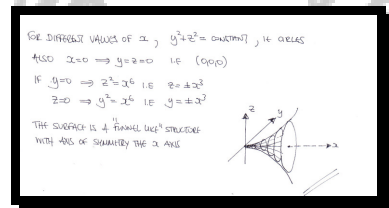 FOR DIFFERENT VALUES OF x, y²+z² = CONSTANT, IE CIRCLES
ALSO x=0 ⟹ y=z=0 I.E (0,0,0)
IF y=0 ⟹ z²=x⁶ I.E z=±x³
z=0 ⟹ y²=x⁶ I.E y=±x³
THE SURFACE IS A "FUNNEL LIKE" STRUCTURE
WITH AXIS OF SYMMETRY THE x AXIS
z
y
x